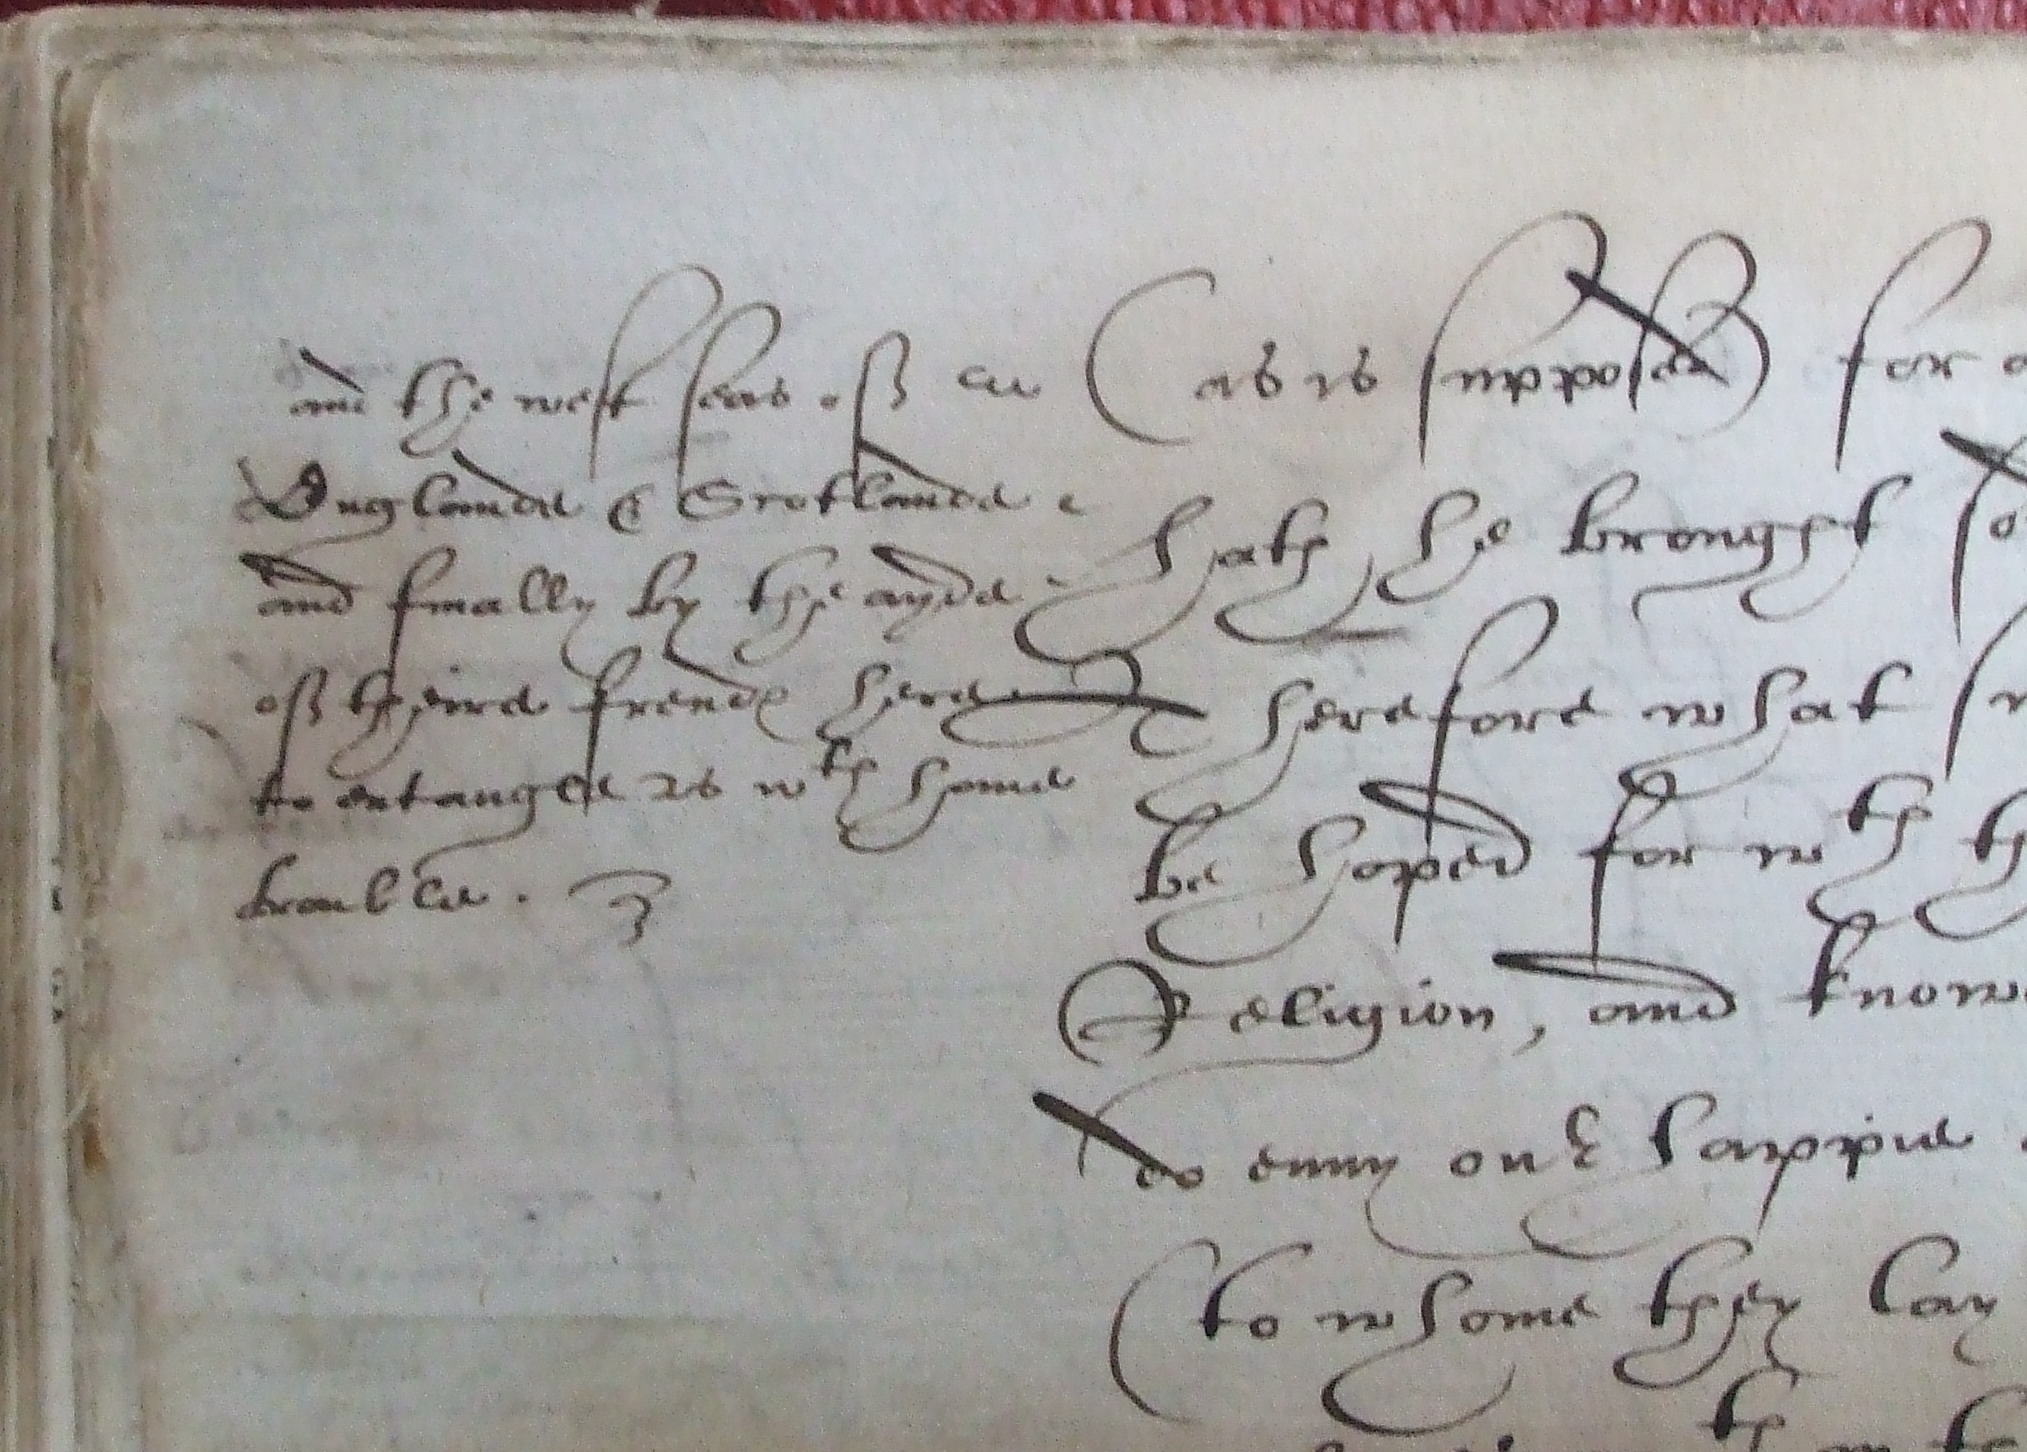 and the west seas off
Englande & Scotlande
and finally by the ayde
off theire frendes here
to entangle us wth home
trouble.
(as is supposed) for
hath he brought
Therefore what
be hoped for wth
Religion, and know
do envy our happie
(to whome they lay